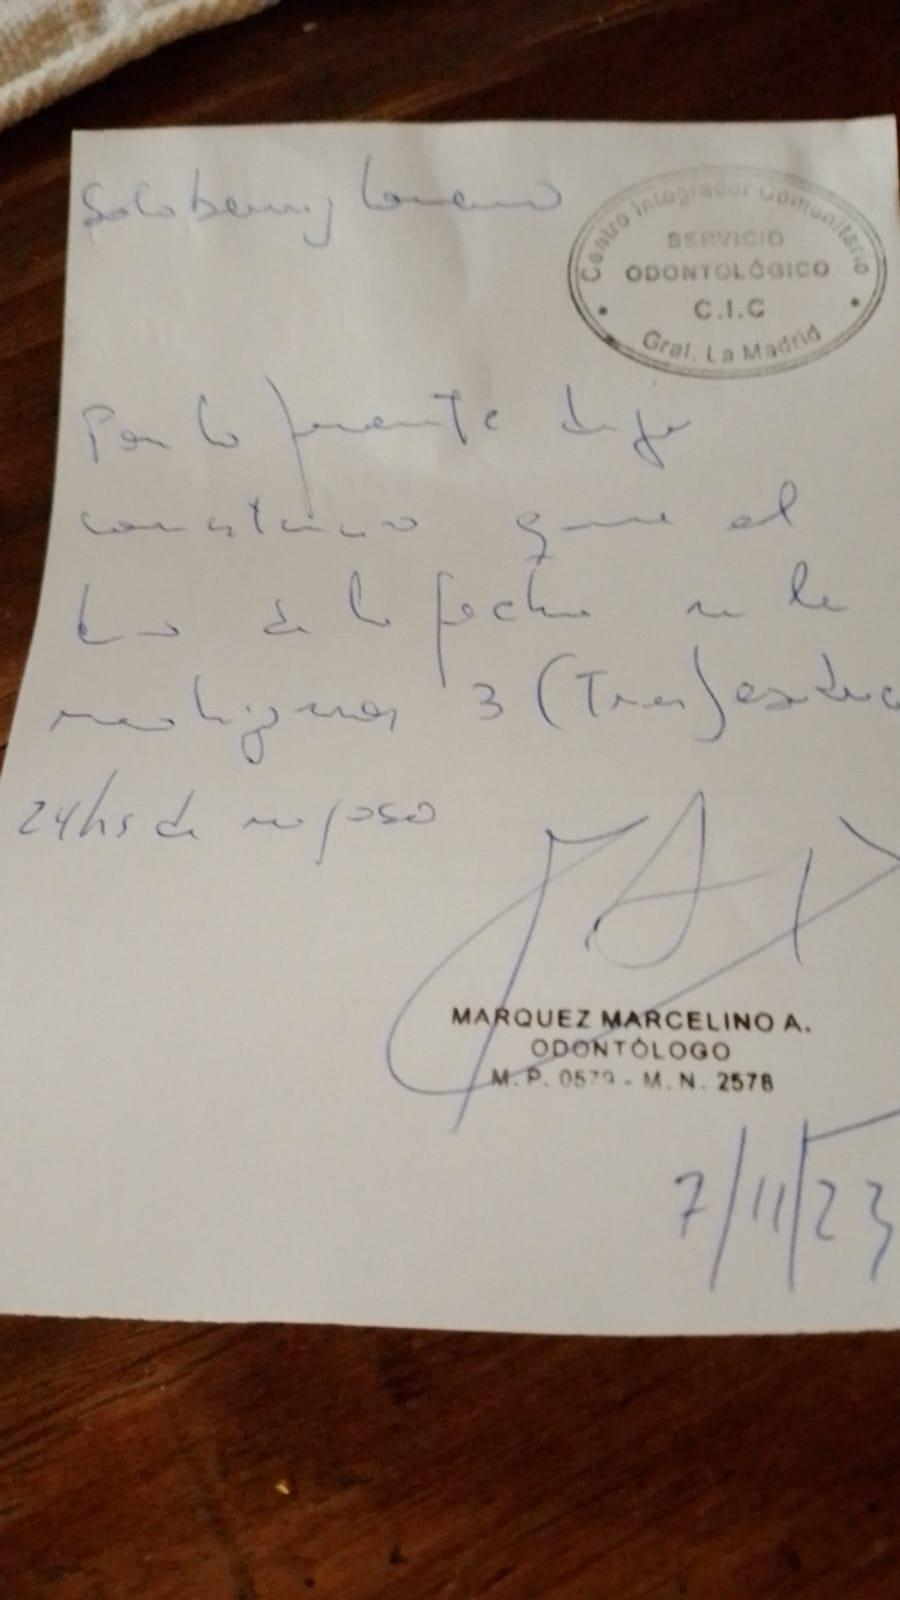 Centro Integrador Comunitario
SERVICIO
ODONTOLÓGICO
C.I.C
Gral. La Madrid
Por la presente dejo
constancia que el
día de la fecha se le
realizaron 3 (Tres)
24hs de reposo
MARQUEZ MARCELINO A.
ODONTÓLOGO
M.P. 0579 - M.N. 2578
7/11/23